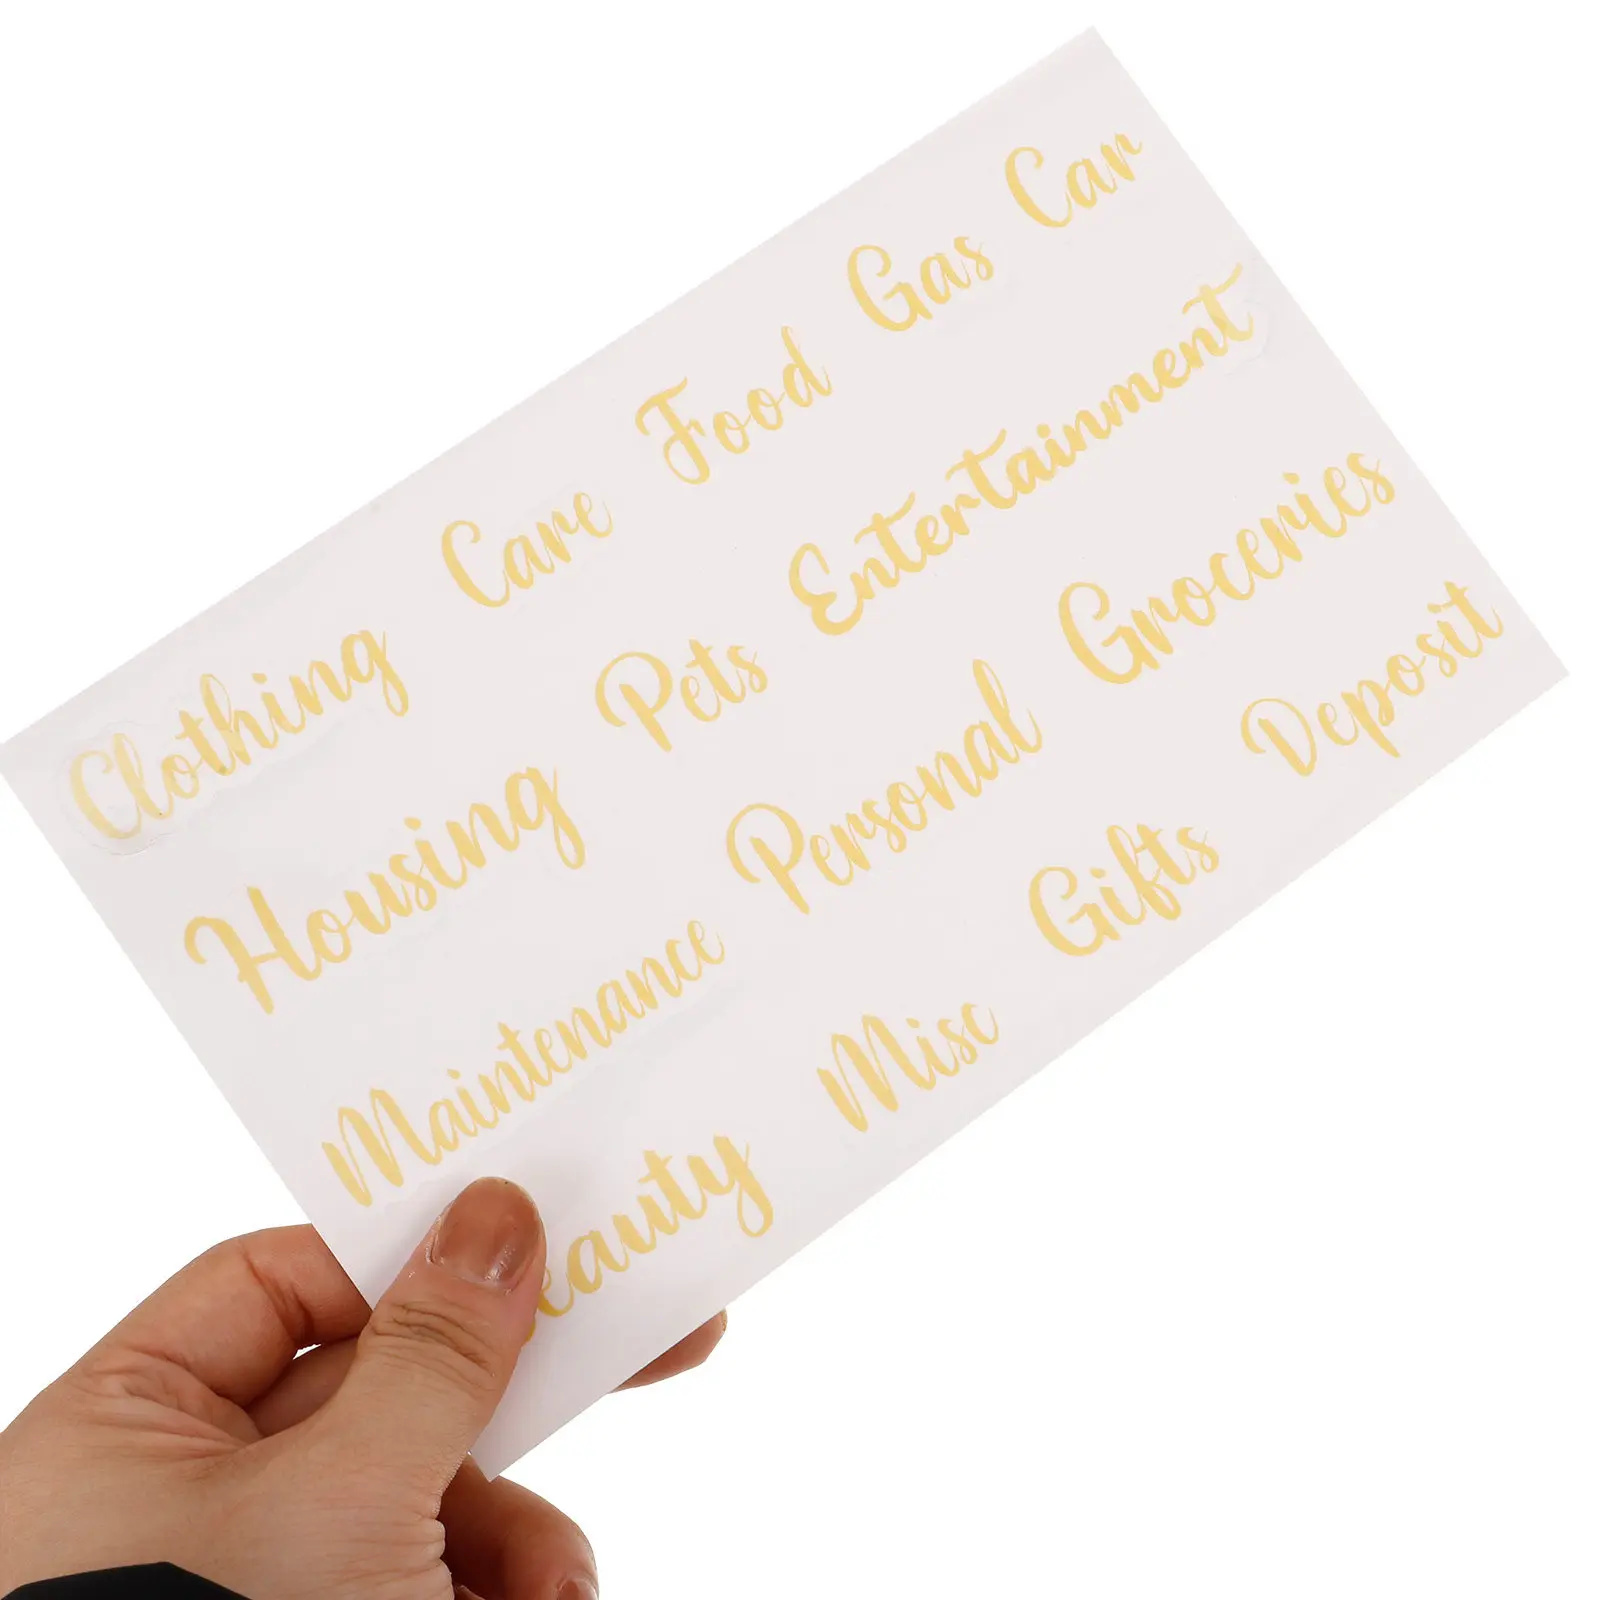 Clothing Care Food Gas Car
Housing Pets Entertainment
Maintenance Personal Groceries
eauty Misc Gifts Deposit